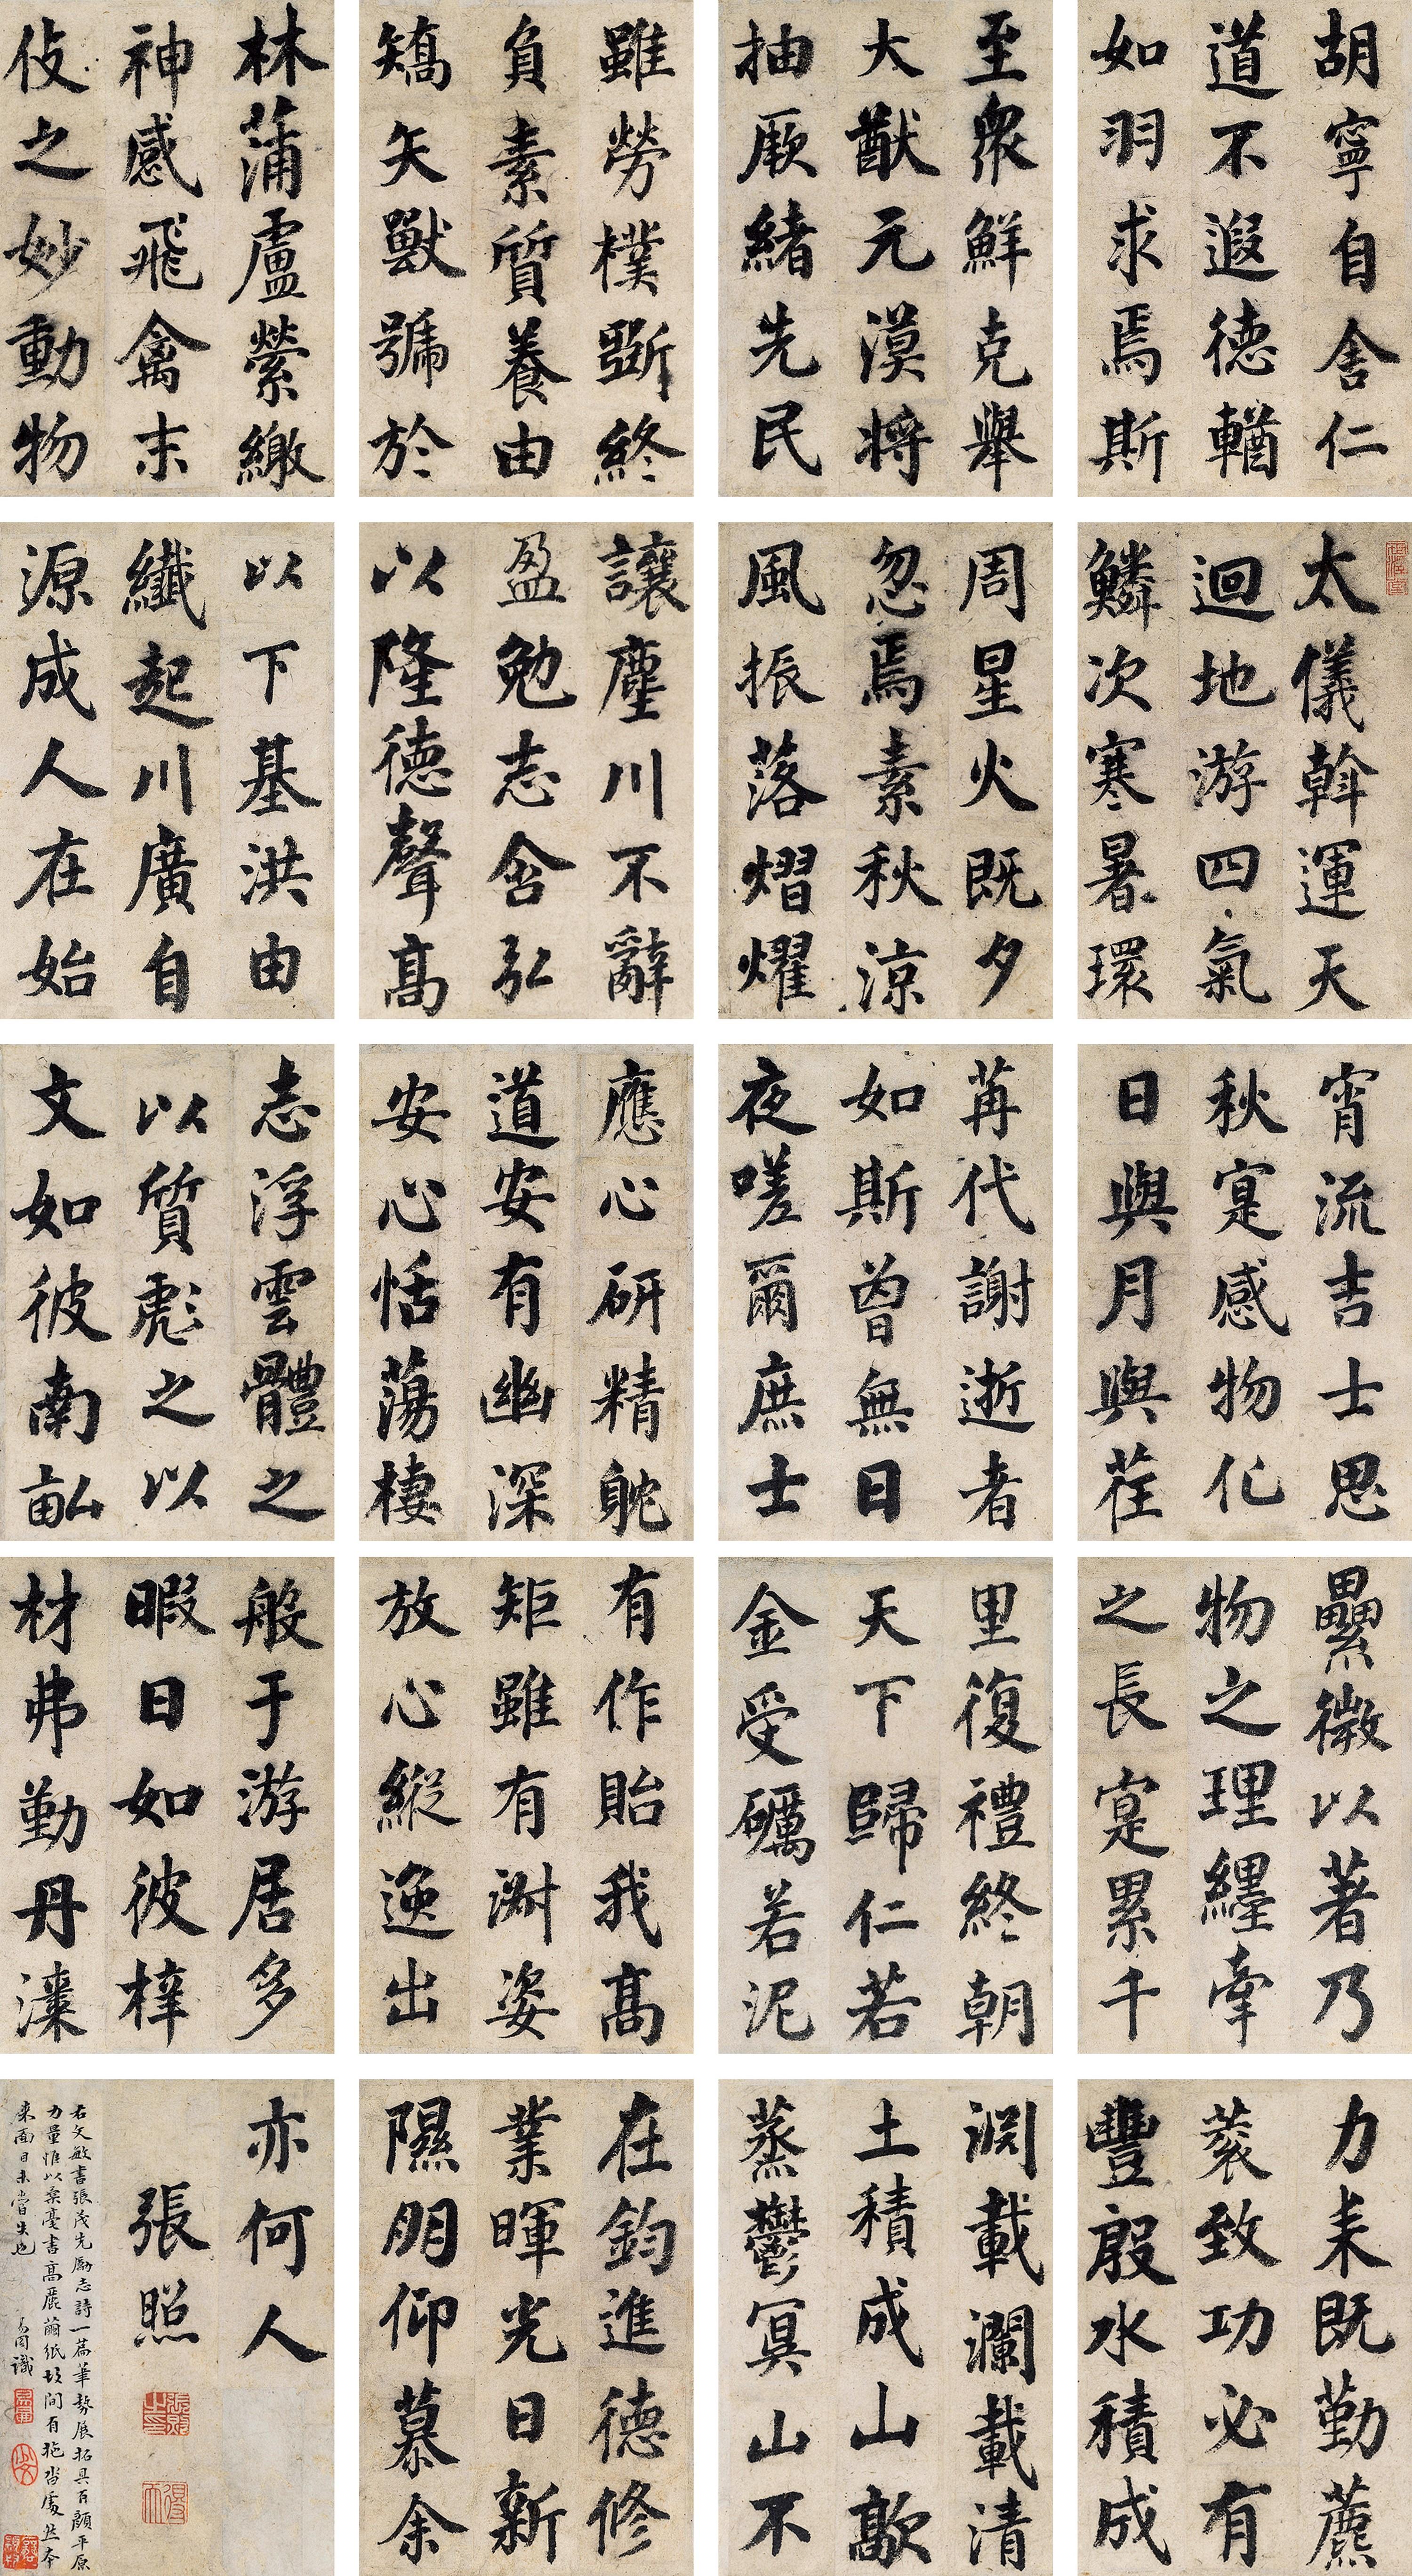 太儀斡運天
迴地游四氣
鱗次寒暑環
周星火既夕
忽焉素秋涼
風振落熠燿
宵流吉士思
秋寔感物化
日與月與荏
苒代謝逝者
如斯曾無日
夜嗟爾庶士
胡寧自舍仁
道不遐德輶
如羽求焉斯
至衆鮮克舉
大猷元漠將
抽厥緒先民
有作貽我高
矩雖有淑姿
放心縱逸出
般于游居多
暇日如彼梓
材弗勤丹漆
雖勞樸斲終
負素質養由
矯矢獸號於
林蒲盧縈繳
神感飛禽末
伎之妙動物
應心研精躭
道安有幽深
安心恬蕩棲
志浮雲體之
以質彪之以
文如彼南畝
力耒既勤藨
蓘致功必有
豐殷水積成
淵載瀾載清
土積成山歊
蒸鬱冥山不
讓塵川不辭
盈勉志含弘
以隆德聲高
以下基洪由
纖起川廣自
源成人在始
纍微以著乃
物之理纆牽
之長寔累千
里復禮終朝
天下歸仁若
金受礪若泥
在鈞進德修
業暉光日新
隰朋仰慕余
亦何人
張照
右文敏書張茂先勵志詩一篇筆勢展拓具有顏平原
力量惟以柔毫書高麗繭紙故間有拖沓處然本
來面目未嘗失也
周識